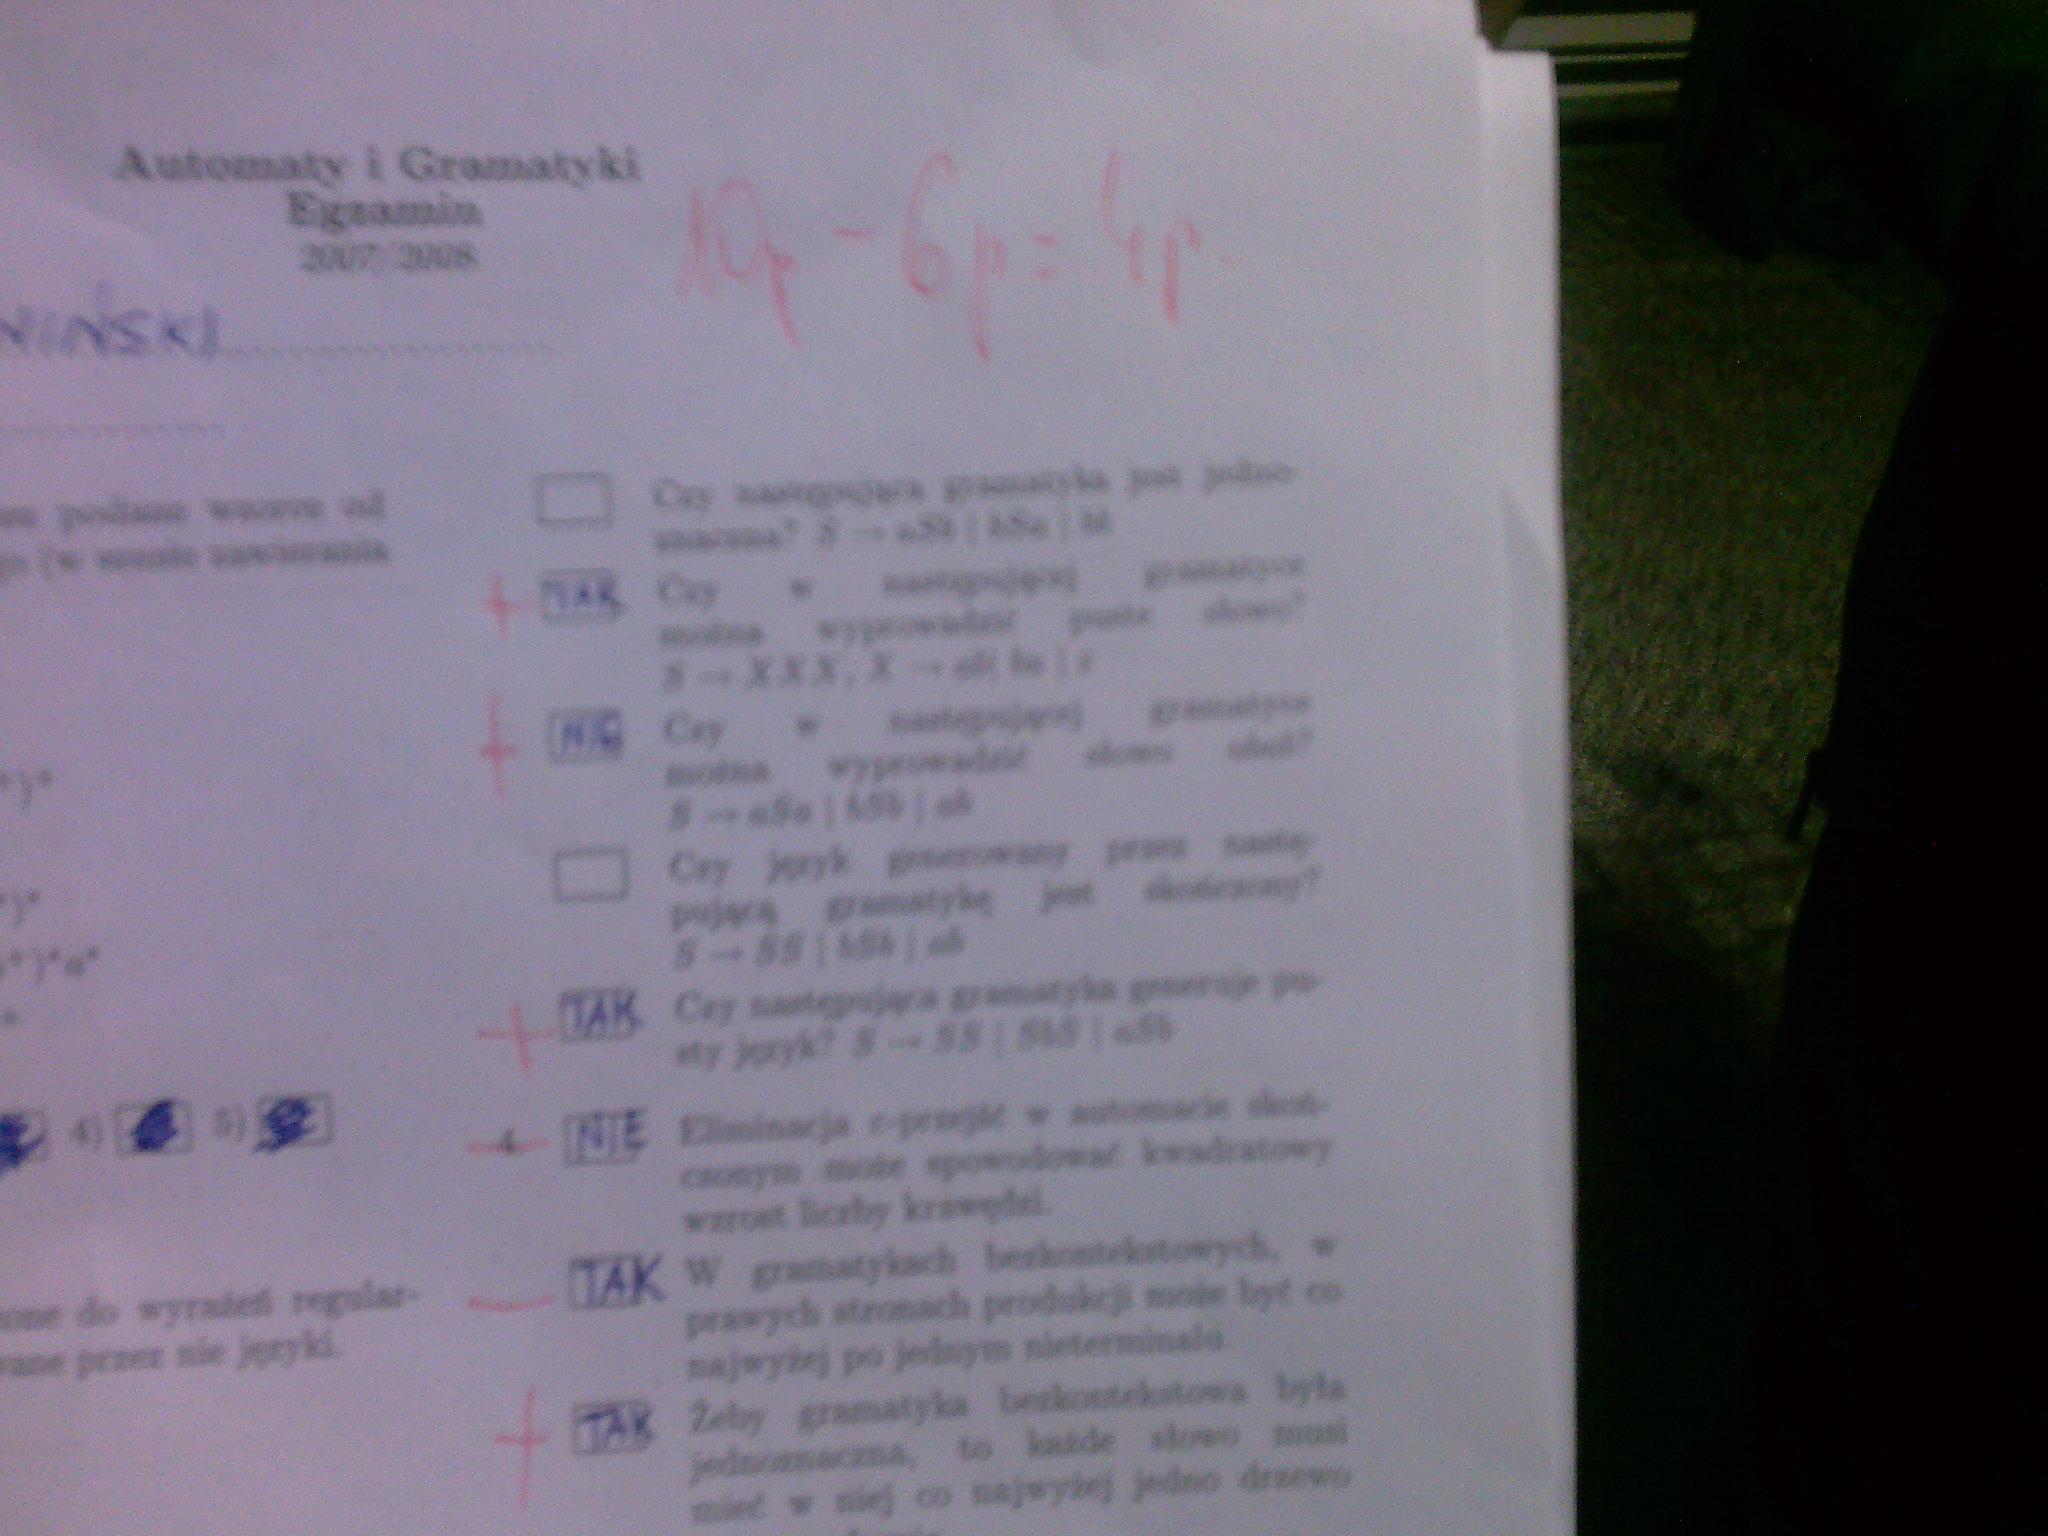 Automaty i Gramatyki
Egzamin
2007/2008
10p - 6p = 4p.
NIŃSKI
podane wzorce od
(w sensie zawierania
)*
)*
+)*a*
*
4) 5)
do wyrażeń regular-
przez nie języki.
Czy następująca gramatyka jest jedno-
znaczna? S → aSb | bSa | bb
+ TAK Czy w następującej gramatyce
można wyprowadzić puste słowo?
S → XXX, X → ab | ba | ε
+ NIE Czy w następującej gramatyce
można wyprowadzić słowo
S → aSa | bSb | ab
Czy język generowany przez nastę-
pującą gramatykę jest skończony?
S → SS | bSb | ab
+ TAK Czy następująca gramatyka generuje pu-
sty język? S → SS | SbS | aSb
4. NIE Eliminacja ε-przejść w automacie skoń-
czonym może spowodować kwadratowy
wzrost liczby krawędzi.
- TAK W gramatykach bezkontekstowych, w
prawych stronach produkcji może być co
najwyżej po jednym nieterminalu.
+ TAK Żeby gramatyka bezkontekstowa była
jednoznaczna, to każde słowo musi
mieć w niej co najwyżej jedno drzewo